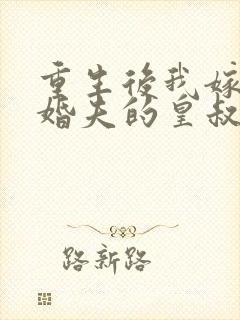 重生後我嫁
婚夫的皇叔
路新路